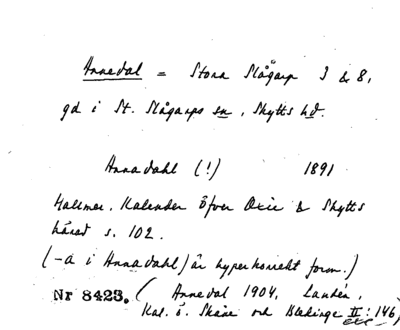 Annedal = Stora Slågarp 3 & 8,
gd i St. Slågarps sn, Skytts hd.
Annadahl (!) 1891
Kallmer. Kalender öfver Oxie & Skytts
härad s. 102.
(-a i Annadahl) är hyperkorrekt form.)
Nr 8423. (Annedal 1904, Lundén,
Kal. ö. Skåne och Blekinge II: 146)
etc